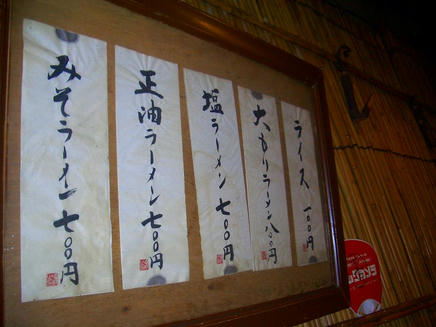 みそラーメン 七〇〇円
正油ラーメン 七〇〇円
塩ラーメン 七〇〇円
大もりラーメン 八〇〇円
ライス 一〇〇円